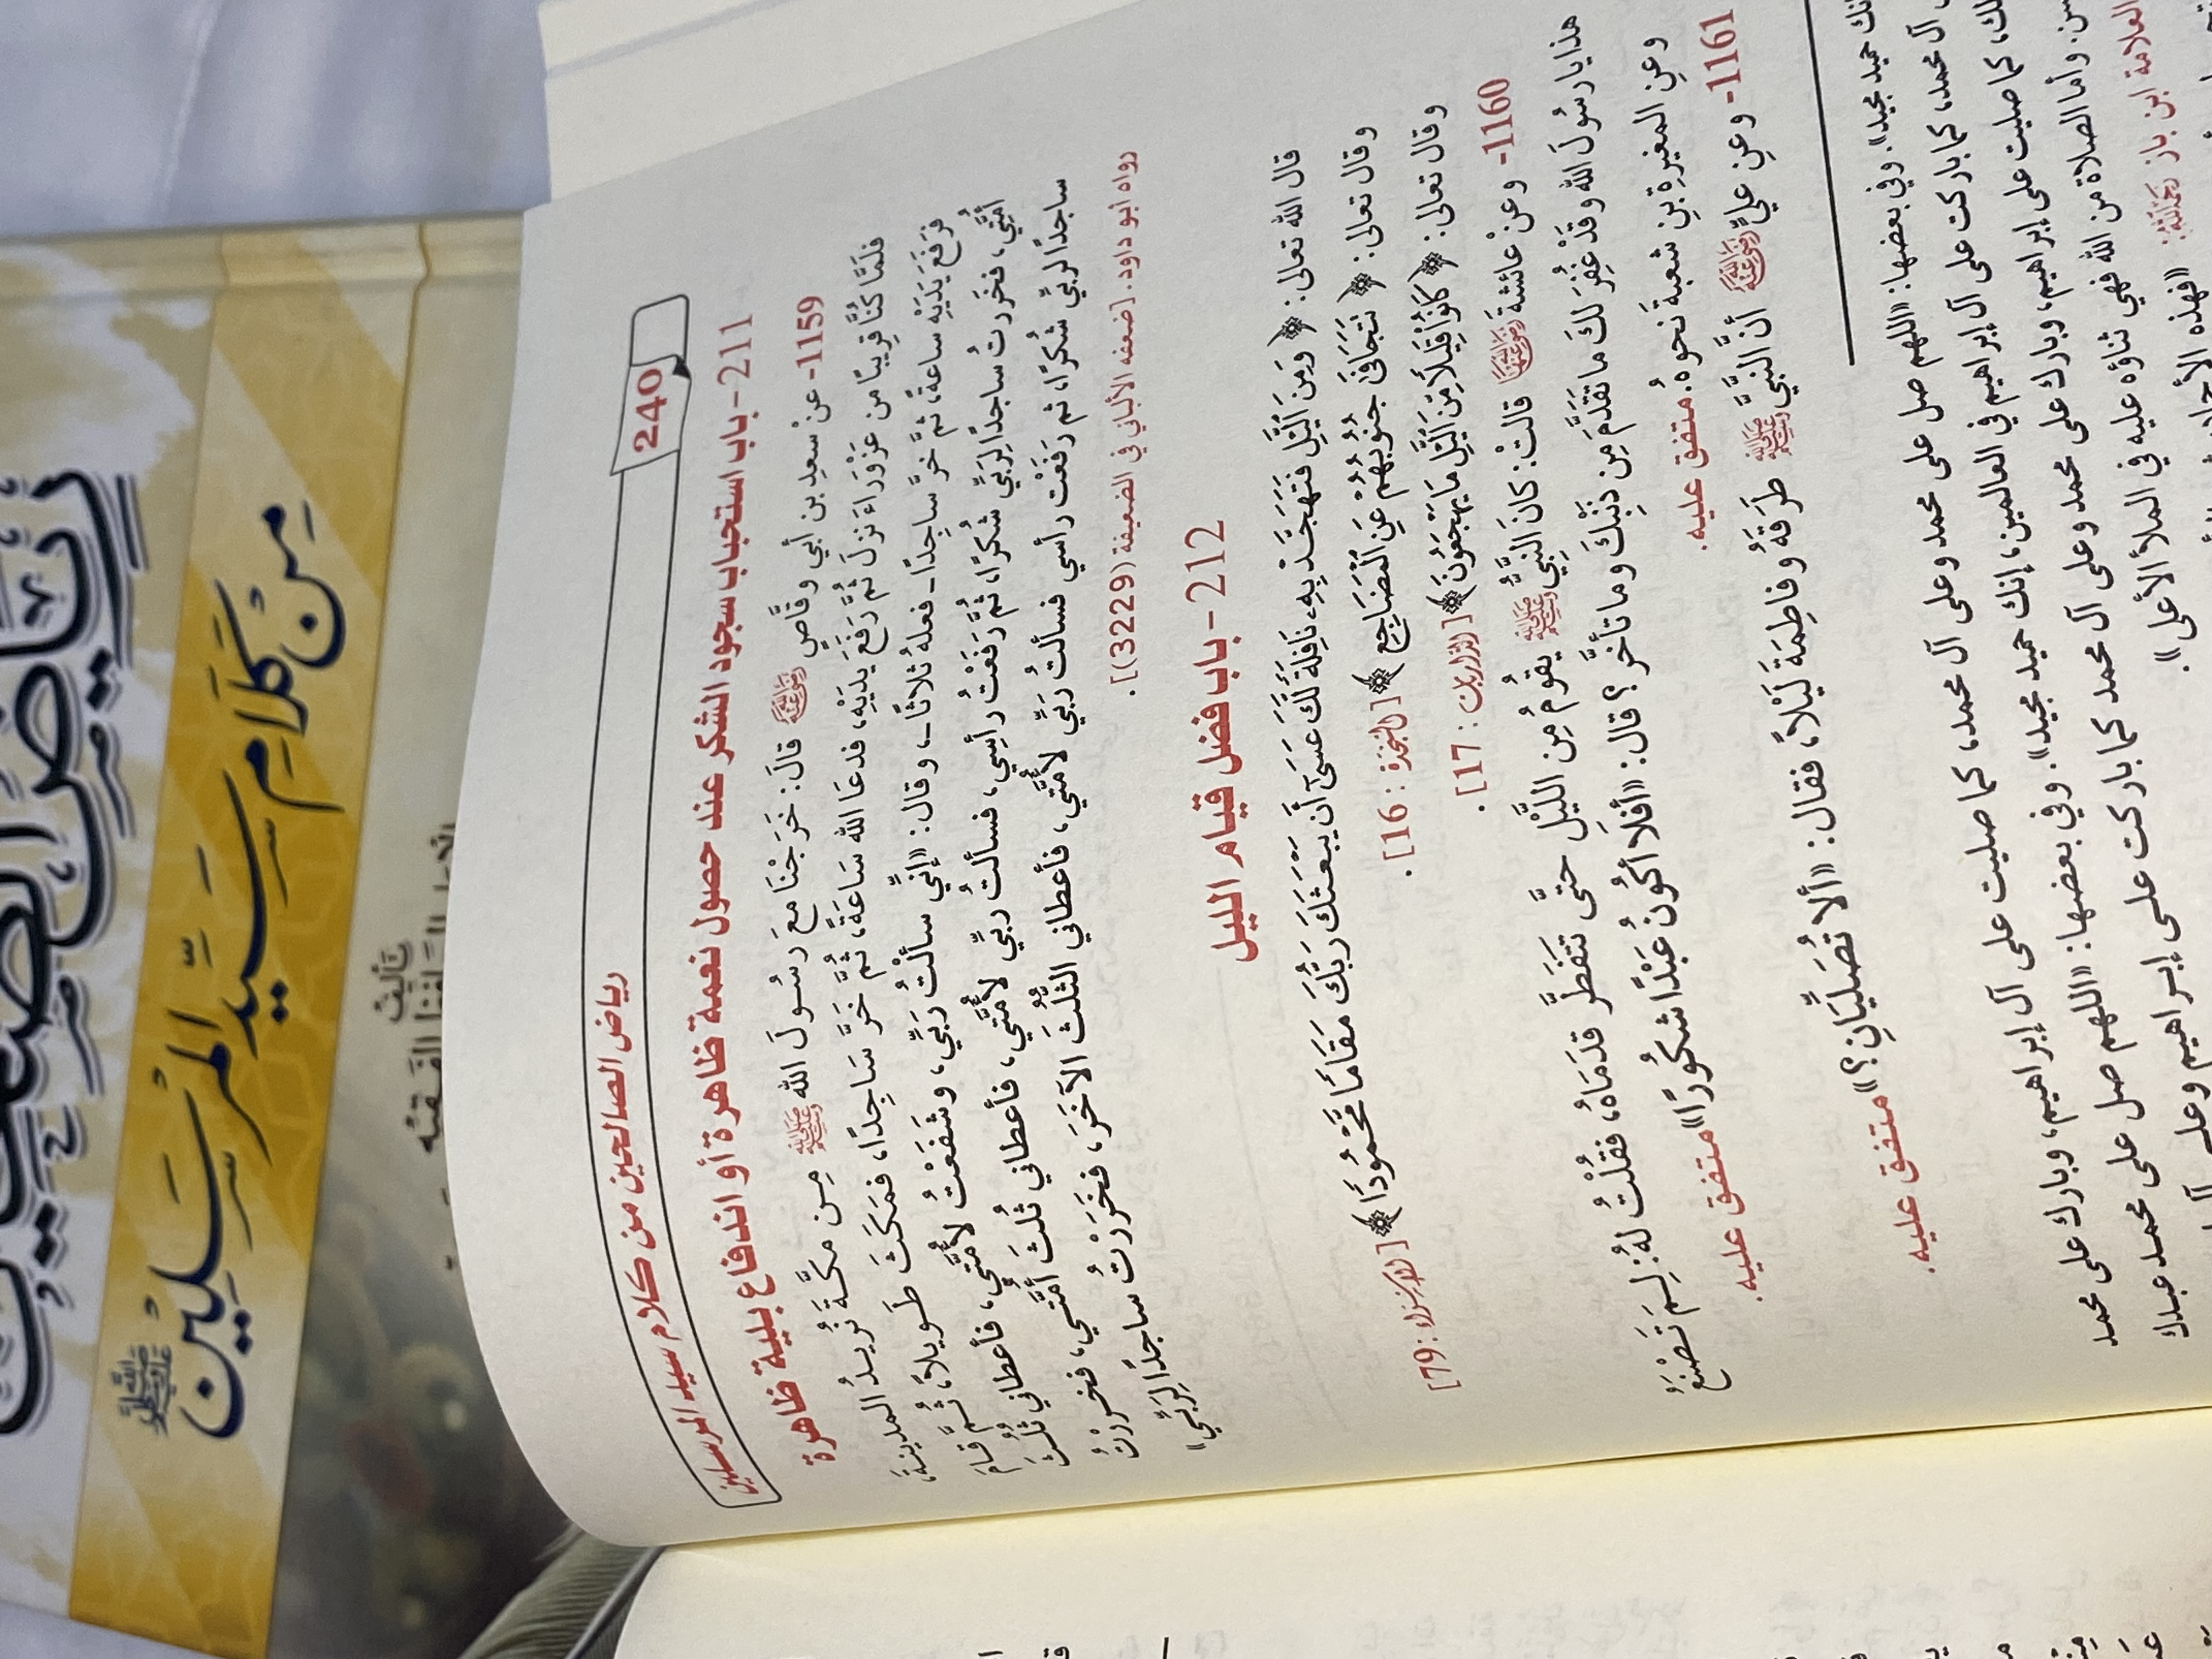 رياض الصالحين
مِنْ كَلَامِ سَيِّدِ المُرْسَلِين ﷺ
تأليف
240
رياض الصالحين من كلام سيد المرسلين
211- باب استحباب سجود الشكر عند حصول نعمة ظاهرة أو اندفاع بلية ظاهرة
1159- عنْ سَعدِ بن أبي وقَّاصٍ رَضِيَ اللَّهُ عَنْهُ قالَ: خَرَجْنَا معَ رَسُولَ الله ﷺ مِن مكَّةَ نُريدُ المدينةَ،
فَلَمَّا كُنَّا قَرِيبًا من عَزْوَرَاءَ نَزلَ ثُمَّ رَفَعَ يَدَيْهِ، فدعَا الله سَاعَةً، ثُمَّ خَرَّ سَاجِدًا، فمَكَثَ طَويلاً، ثُمَّ قامَ
فرَفعَ يَدَيْهِ ساعةً، ثمَّ خرَّ ساجِدًا- فعلهُ ثلاثًا-، وقال: «إنِّي سألْتُ رَبِّي، وشَفَعْتُ لأُمَّتِي، فأعطاني ثلُثَ
أُمَّتِي، فخَرَرتُ ساجدًا لِرَبِّي شُكرًا، ثُمَّ رَفَعْتُ رأسِي، فسألتُ ربِّي لأمَّتي، فأعطاني ثُلثَ أمَّتي، فخررْتُ
ساجدًا لربِّي شُكرًا، ثم رَفَعْت رأسي فسألتُ رَبِّي لأمَّتي، فأعطاني الثُّلُثَ الآخَرَ، فخَرَرْتُ ساجدًا لِرَبِّي»
رواه ابو داود. [ضعفه الألباني في الضعيفة (3229)].
212- باب فضل قيام الليل
قال الله تعالى: ﴿ وَمِنَ ٱلَّيۡلِ فَتَهَجَّدۡ بِهِۦ نَافِلَةٗ لَّكَ عَسَىٰٓ أَن يَبۡعَثَكَ رَبُّكَ مَقَامٗا مَّحۡمُودٗا ﴾ [الإسراء: 79]
وقال تعالى: ﴿ تَتَجَافَىٰ جُنُوبُهُمۡ عَنِ ٱلۡمَضَاجِعِ ﴾ [السجدة: 16].
وقال تعالى: ﴿ كَانُواْ قَلِيلٗا مِّنَ ٱلَّيۡلِ مَا يَهۡجَعُونَ ﴾ [الذاريات: 17].
1160- وعنْ عائشة رَضِيَ اللَّهُ عَنْهَا قالتْ: كانَ النَّبِيُّ ﷺ يقومُ مِن اللَّيْلِ حتَّى تتفَطَّر قدَمَاهُ، فقُلْتُ لهُ: لِمَ تَصْنَعُ
هذا يا رسُولَ الله وقدْ غُفِرَ لكَ ما تقدَّمَ مِن ذَنْبكَ وما تأخَّر؟ قال: «أفلَا أكُونُ عَبْدًا شكُورًا» متفق عليه.
وعنِ المغيرةِ بنِ شعبةَ نحوهُ. متفق عليه.
1161- وعنِ عليٍّ رَضِيَ اللَّهُ عَنْهُ أنَّ النَّبيَّ ﷺ طرَقهُ وفاطِمَةَ لَيْلاً، فقال: «ألا تُصَلِّيَانِ؟» متفق عليه.
إنك حميد مجيد». وفي بعضها: «اللهم صل على محمد وعلى آل محمد، كما صليت على آل إبراهيم، وبارك على محمد
آل محمد، كما باركت على آل إبراهيم في العالمين، إنك حميد مجيد». وفي بعضها: «اللهم صل على محمد عبدك
كما صليت على إبراهيم، وبارك على محمد وعلى آل محمد كما باركت على إبراهيم وعلى
وأما الصلاة من الله فهي ثناؤه عليه في الملأ الأعلى».
العلامة ابن باز رَحِمَهُ اللَّهُ: «فهذه